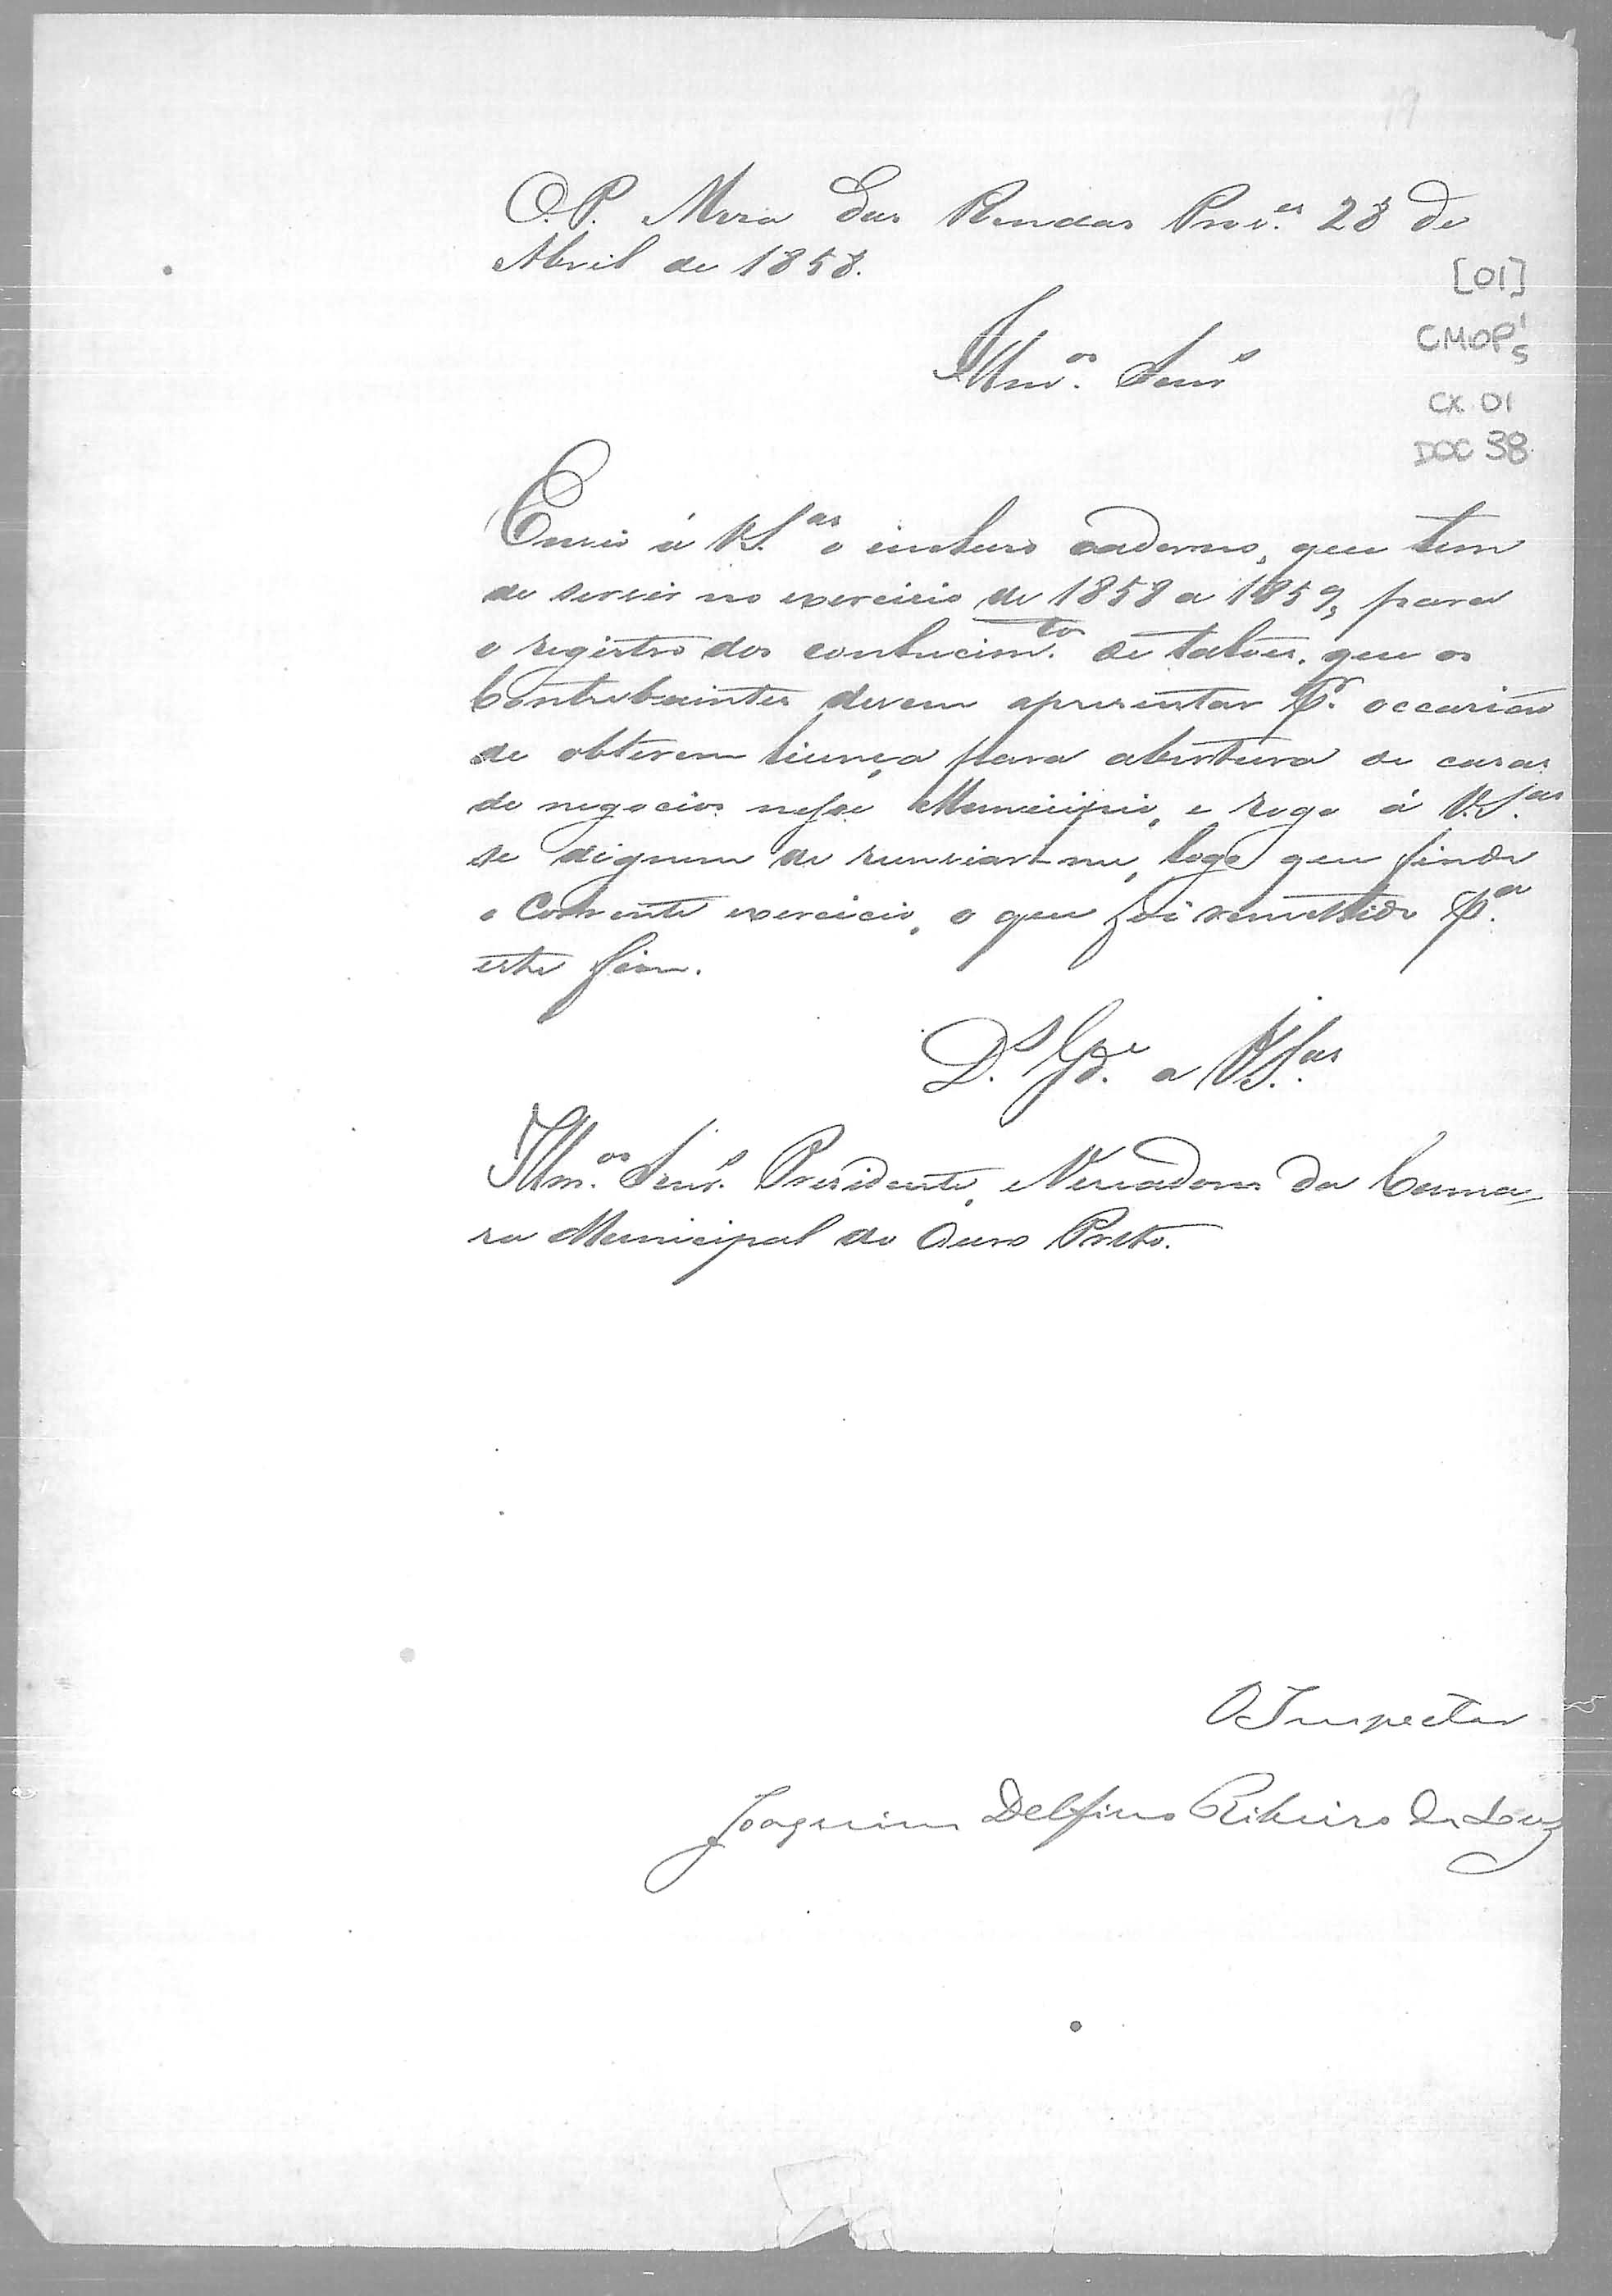 O.P. Meza das Rendas Prov.es 28 de
Abril de 1858.
[01]
CMOP
CX 01
DOC 38
Illm.os Senr.s
Envio á V.S.as o incluso caderno, que tem
de servir no exercicio de 1858 a 1859, para
o registro dos conhecim.tos de talões, que os
Contribuintes devem apresentar p.r occasião
de obterem licença para abertura de casas
de negocios nesse Municipio, e rogo á V.S.as
se dignem de renviar-me, logo que finde
o Corrente exercicio, o que foi remettido p.a
este fim.
D.s G.de a V.S.as
Illm.os Senr.s Presidente, e Vereadores da Cama-
ra Municipal do Ouro Preto.
O Inspector
Joaquim Delfino Ribeiro da Luz